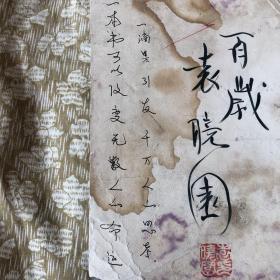 百歲
袁晓園
一滴墨引发千万人的思考.
一本书可以改变无数人的命运